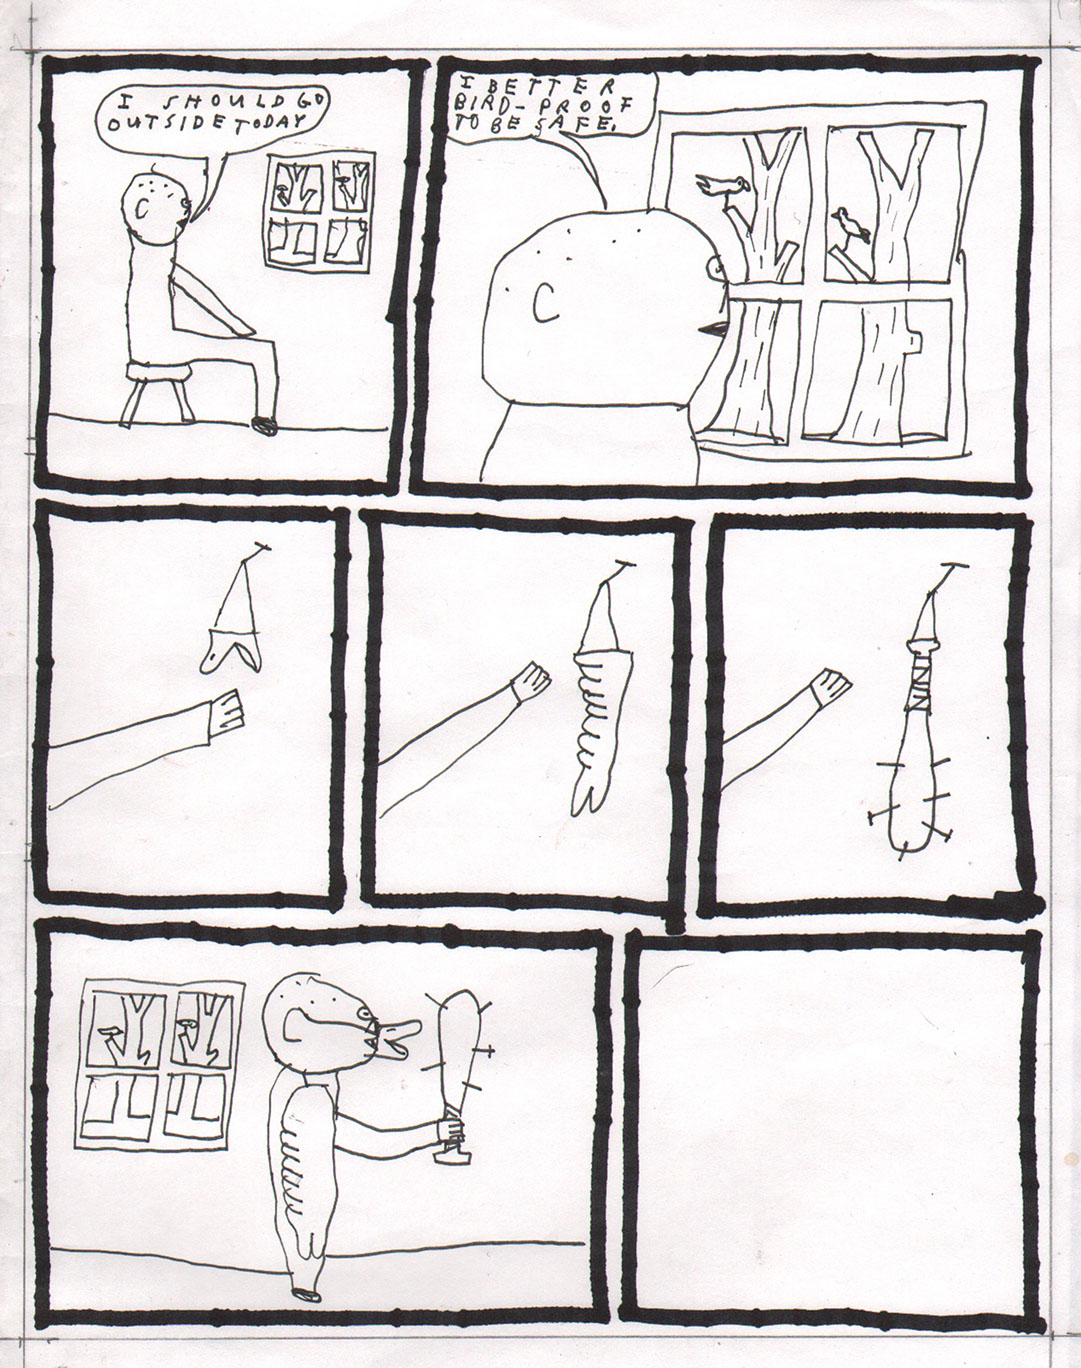 I SHOULD GO
OUTSIDE TODAY
I BETTER
BIRD-PROOF
TO BE SAFE.